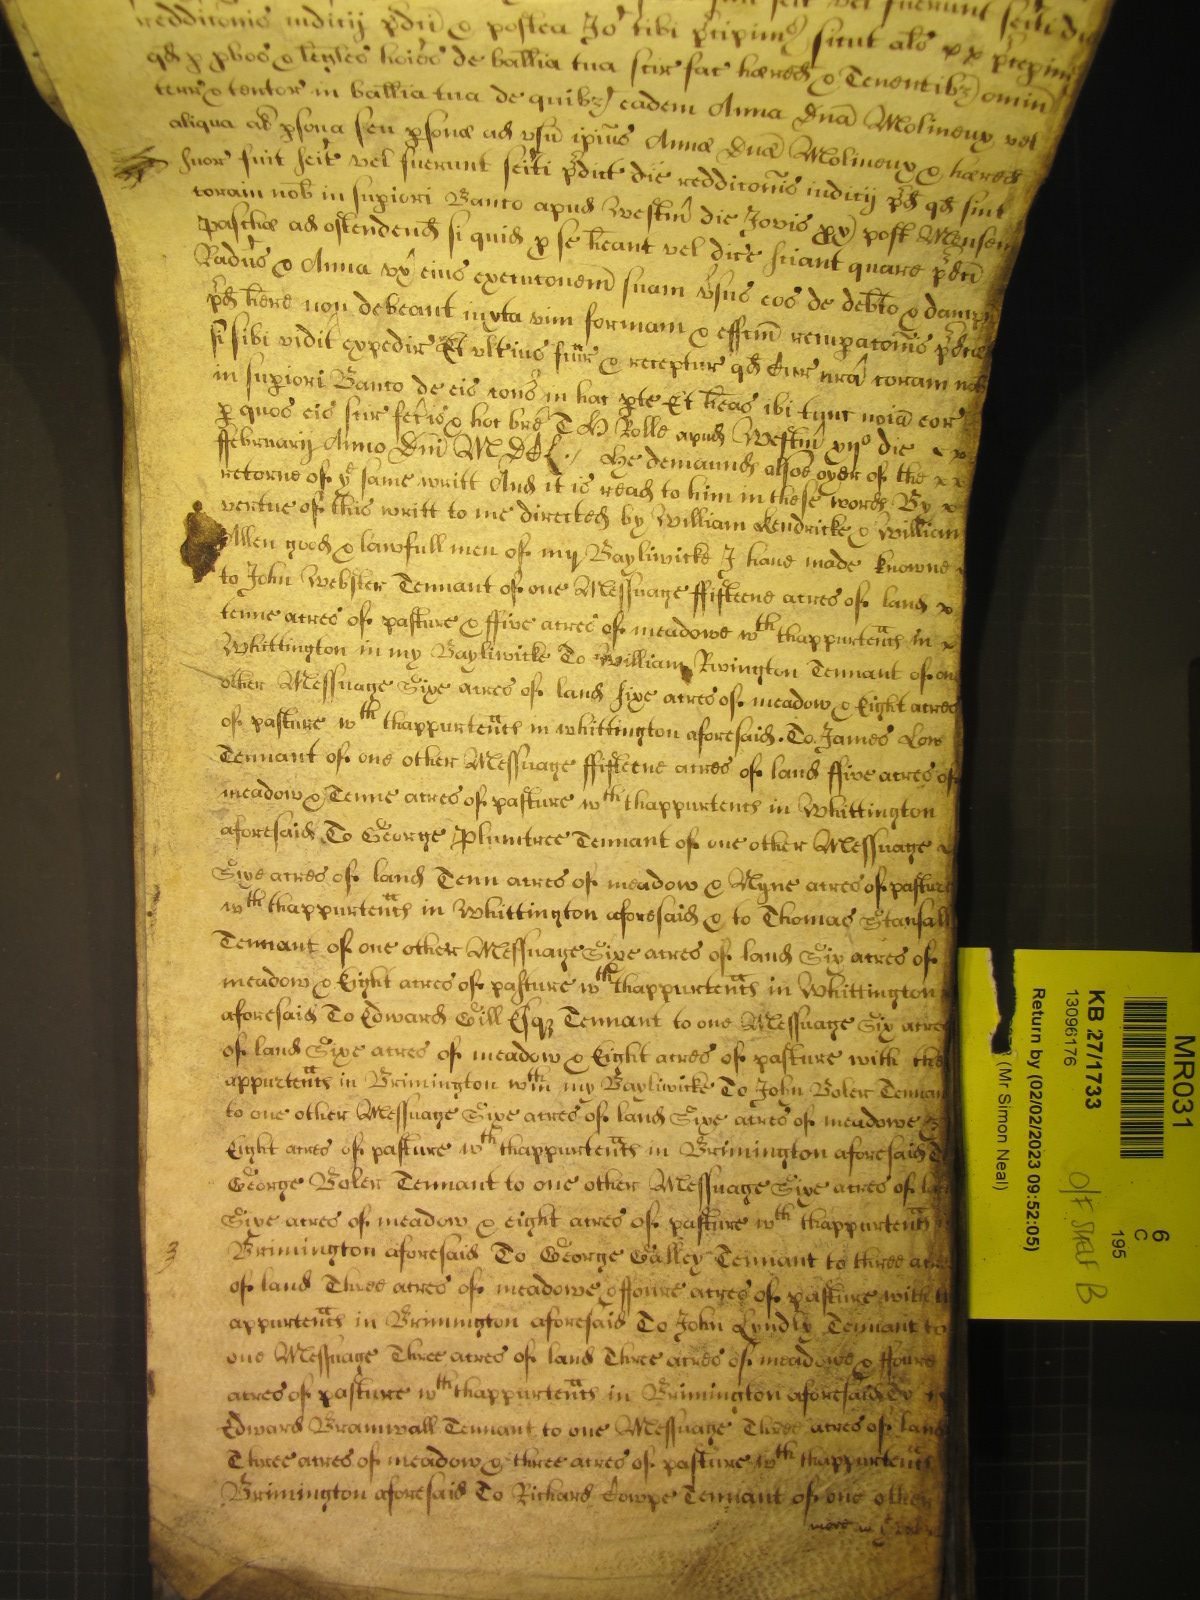 redditonis iudicij pdci & postea Jo tibi pcipim sicut als xx pcepim
qd p pbos & legles hoies de ballia tua scir fac hæred & Tenentibz omin
terr & tentor in ballia tua de quibz eadem Anna Dna Molineux vel
aliqua al psona seu psonæ ad usu ipius Annæ Dnæ Molineux & hæred
suor fuit seit vel fuerunt seiti pdict die redditonis iudicij pd qd sint
coram nob in supiori Banco apud Westm die Jovis px post Mensem
Paschæ ad ostendend si quid p se heant vel dice sciant quare pdci
Radus & Anna ux eius executonem suam vsus eos de debto & dampn
pd here non debeant iuxta vim formam & effcm recupatonis pdcæ
si sibi viderit expedir Et ulterius fcur & receptur qd Cur nra coram nob
in supiori Banco de eis cons in hac pte Et heas ibi tunc noia eor
p quos eis scir fecis & hoc bre T H Rolle apud Westm vijo die x x
ffebruarij Anno Dni MDCL ./ He demaunds alsoe oyer of the x x
retorne of ye same writt And it is read to him in these words By x
vertue of this writt to me directed by William Kendricke & William
Allen good & lawfull men of my Bayliwicke I have made knowne
to John Webster Tennant of one Messuage ffifteene acres of land x
tenne acres of pasture & ffive acres of meadowe wth thappurtenncs in x
Whittington in my Bayliwicke To William Rivington Tennant of one
other Messuage Sixe acres of land sixe acres of meadow & Eight acres
of pasture wth thappurtenncs in whittington aforesaid. To James Low
Tennant of one other Messuage ffifteene acres of land ffive acres of
meadow & Tenne acres of pasture wth thappurtencs in Whittington
aforesaid To George Plumtree Tennant of one other Messuage x
Sixe acres of land Tenn acres of meadow & Nyne acres of pasture
wth thappurtencs in Whittington aforesaid & to Thomas Stansall
Tennant of one other Messuage Sixe acres of land Six acres of
meadow & Eight acres of pasture wth thappurtencs in Whittington
aforesaid To Edward Gill Esqz Tennant to one Messuage Six acres
of land Sixe acres of meadow & Eight acres of pasture with the
appurtencs in Brimington wthin my Bayliwicke To John Boler Tennan
to one other Messuage Sixe acres of land Sixe acres of meadowe &
Eight acres of pasture wth thappurtencs in Brimington aforesaid To
George Boler Tennant to one other Messuage Sixe acres of land
Sixe acres of meadow & eight acres of pasture wth thappurtencs
3 Brimington aforesaid To George Galley Tennant to three acres
of land Three acres of meadowe & ffoure acres of pasture with th
appurtencs in Brimington aforesaid To John Lyndly Tennant to
one Messuage Three acres of land Three acres of meadowe & ffoure
acres of pasture wth thappurtencs in Brimington aforesaid To
Edward Bramwall Tennant to one Messuage Three acres of land
Three acres of meadow & three acres of pasture wth thappurtencs
Brimington aforesaid To Richard Cowpe Tennant of one other
more in
MR031
6
C
195
KB 27/1733
13096176
Off Shelf B
Return by (02/02/2023 09:52:05)
(Mr Simon Neal)